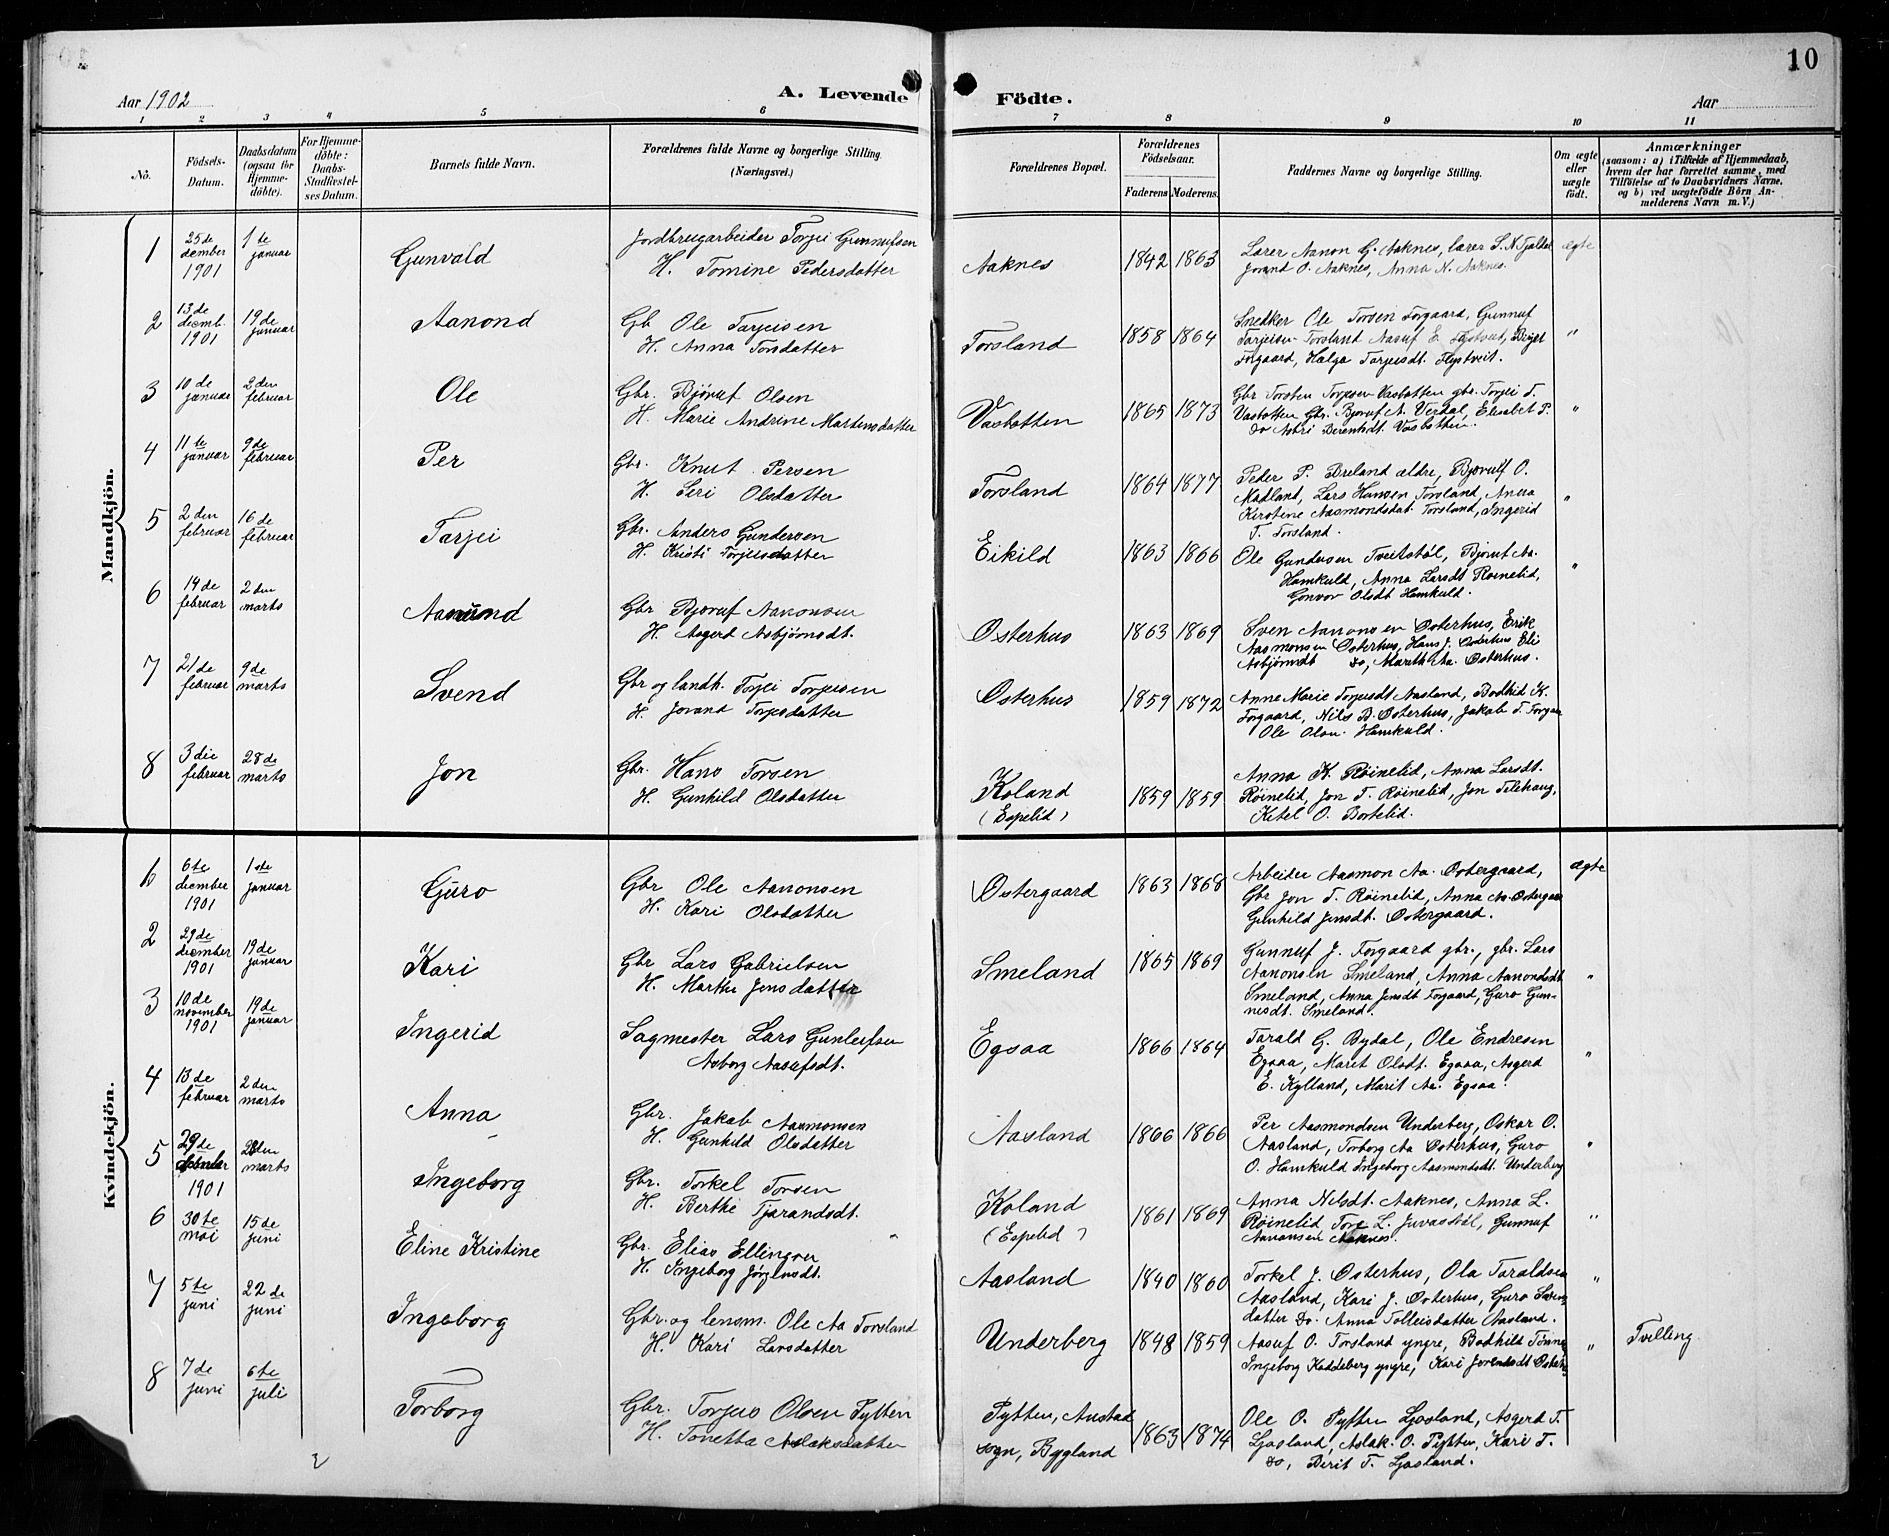 10
Aar 1902
A. Levende
Födte.
Aar
1 2 3 4 5 6 7 8 9 10 11
No.
Födsels-Datum.
Daabsdatum (ogsaa for Hjemme-döbte).
For Hjemme-döbte: Daabs-Stadfæstel-ses Datum.
Barnets fulde Navn.
Forældrenes fulde Navne og borgerlige Stilling (Næringsvei.)
Forældrenes Bopæl.
Forældrenes Födselsaar.
Faderens Moderens.
Faddernes Navne og borgerlige Stilling.
Om ægte eller uægte födt.
Anmærkninger
(saasom: a) i Tilfælde af Hjemmedaab,
hvem der har forrettet samme, med
Tilföielse af to Daabsvidners Navne,
og b) ved uægtefödte Börn An-
melderens Navn m. V.)
Mandkjön.
1 25de dember 1901 1te januar Gunvald
Jordbrugarbeider Torjei Gunnufsen
H. Tomine Pedersdatter
Aaknes 1842 1863
Lærer Aanon G. Aaknes, lærer S. N. Fjaldal
Jorand O. Aaknes, Anna N. Aaknes.
ægte
2 13de decemb. 1901 19de januar Aanond
Gb Ole Tarjeisen
H. Anna Torsdatter
Torsland 1858 1864
Snedker Ole Torsen Forgaard, Gunnuf
Tarjeisen Torsland Aasuf E. Flystveit, Birjet
Forgaard, Helga Tarjeisdt. Flystveit.
"
3 10de januar 2den februar Ole
Gbr. Bjørnuf Olsen
H. Marie Andrine Martensdatter
Vasbotten 1865 1873
Gbr Torsten Torjesen Vasbotten gbr. Torjei T.
Vasbotten Gbr. Bjoruf A. Verdal, Elisabet P.
do Astri Berentsdt. Vasbotten.
"
4 11te januar 9de februar Per
Gbr. Knut Persen
H. Seri Olsdatter
Torsland 1864 1877
Peder P. Breland ældre, Bjorulf O.
Madland, Lars Hansen Torsland, Anna
Kirstine Aasmondsdat. Torsland, Ingerid
T. Torsland.
"
5 2den februar 16de februar Tarjei
Gbr. Anders Gundersen
H. Kristi Torjeisdatter
Eikild 1863 1866
Ole Gundersen Tveitstøl, Bjoruf Aa.
Hamkuld, Anna Larsdt Roinelid,
Gonvor Olsdt Hamkuld.
"
6 14de februar 2den marts Aamund
Gbr Bjoruf Aanonsen
H. Asgerd Asbjørnsdt.
Osterhus 1863 1869
Sven Aanonsen Østerhus, Erik
Aasmonsen Østerhus, Hans J. Østerhus Eli
Asbjørnsdt do, Marith Aa. Østerhus.
7 21de februar 9de marts Svend
Gbr og landh. Torjei Torjusen
H. Jorand Torjesdatter
Østerhus 1859 1872
Anne Marie Torjusdt Aasland, Bodhild K.
Forgaard, Nils B. Østerhus, Jakob T. Forgaa
Ole Olsn. Hamkuld.
8 3die februar 28de marts Jon
Gbr. Hans Torsen
H. Gunhild Olsdatter
Koland
(Espelid) 1859 1859
Anna K. Røinelid, Anna Larsdt.
Røinelid, Jon T. Røinelid, Jon Telehaug,
Ketel O. Bortelid.
Kvindekjön.
1 6te diember 1901 1ste januar Guro
Gbr Ole Aanonsen
H. Kari Olsdatter
Østergaard 1863 1868
Arbeider Aasmon Aa. Østergaard,
Gbr Jon T. Røinelid, Anna Aa. Østergaa
Gunhild Jensdt. Østergaard.
ægte
2 29de diember 1901 19de januar Kari
Gbr Lars Gabrielsen
H. Marthe Jensdatter
Smeland 1865 1869
Gunnuf J. Forgaard gbr., gbr. Lars
Aanonsen Smeland, Anna Aanondsdt
Smeland, Anna Jensdt Forgaard, Guro Gun-
nesdt. Smeland.
"
3 10de november 1901 19de januar Ingerid
Sagmester Lars Gunleifsen
Asborg Aasufsdt.
Egsaa 1866 1864
Tarald G. Bydal, Ole Endresen
Egsaa, Maret Olsdt. Egsaa, Asgerd
E. Kylland, Marit Aa. Egsaa.
"
4 13de februar 2den marts Anna
Gbr. Jakob Aasmonsen
H. Gunhild Olsdatter
Aasland 1866 1866
Per Aasmondsen Underberg, Oskar O.
Aasland, Torborg Aa Østerhus, Guro
O. Hamkuld Ingeborg Aasmondsdt. Underberg
"
5 29de 1901 marts Ingeborg
Gbr. Torkel Torsen
H. Berthe Tjarandsdt.
Koland
(Espelid) 1861 1869
Anna Nilsdt. Aaknes, Anna L.
Røinelid, Tore L. Juvasstøl, Gunnuf
Aanonsen Aaknes.
"
6 30te mai 15de juni Eline Kristine
Gbr. Elias Ellingsen
H. Ingeborg Jørgensdt.
Aasland 1840 1860
Torkel J. Østerhus, Ola Taraldsen
Aasland, Kari J. Østerhus, Guro Sven-
datter do. Anna Tolleisdatter Aasland.
"
7 5te juni 22de juni Ingeborg
Gbr. og lensm. Ole Aa Torsland
H. Kari Larsdatter
Underberg 1848 1859
Aasuf O. Torsland yngre, Bodhild Tønne
Ingeborg Kaddeberg yngre, Kari Jorendsdt Østerh
"
Tvilling
8 7de juni 6te juli Torborg
Gbr. Torjus Olsen Pytten
H. Tonetta Aslaksdatter
Pytten, Austad
sogn, Bygland 1863 1874
Ole O. Pytten Ljosland, Asgerd T.
Ljosland, Aslak. O. Pytten, Kari T.
do, Berit T. Ljosland.
2